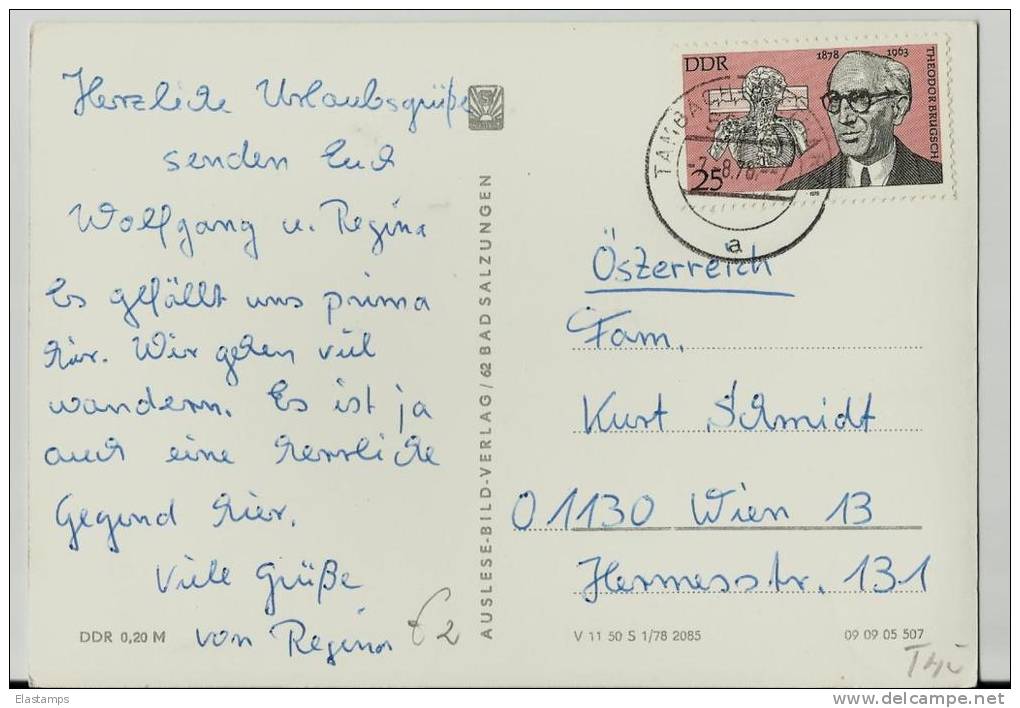 Herzliche Urlaubsgrüße
senden Euch
Wolfgang u. Regina
Es gefällt uns prima
hier. Wir gehen viel
wandern. Es ist ja
auch eine herrliche
Gegend hier.
Viele Grüße
von Regina
€ 2
DDR 0,20 M
AUSLESE-BILD-VERLAG/62 BAD SALZUNGEN
DDR
1878
1963
THEODOR BRUGSCH
25
TAMBACH
-7.-8.78.--7
a
Österreich
Fam.
Kurt Schmidt
O 1130 Wien 13
Hermesstr. 131
V 11 50 S 1/78 2085
09 09 05 507
Thü
Elastamps
www.delcampe.net